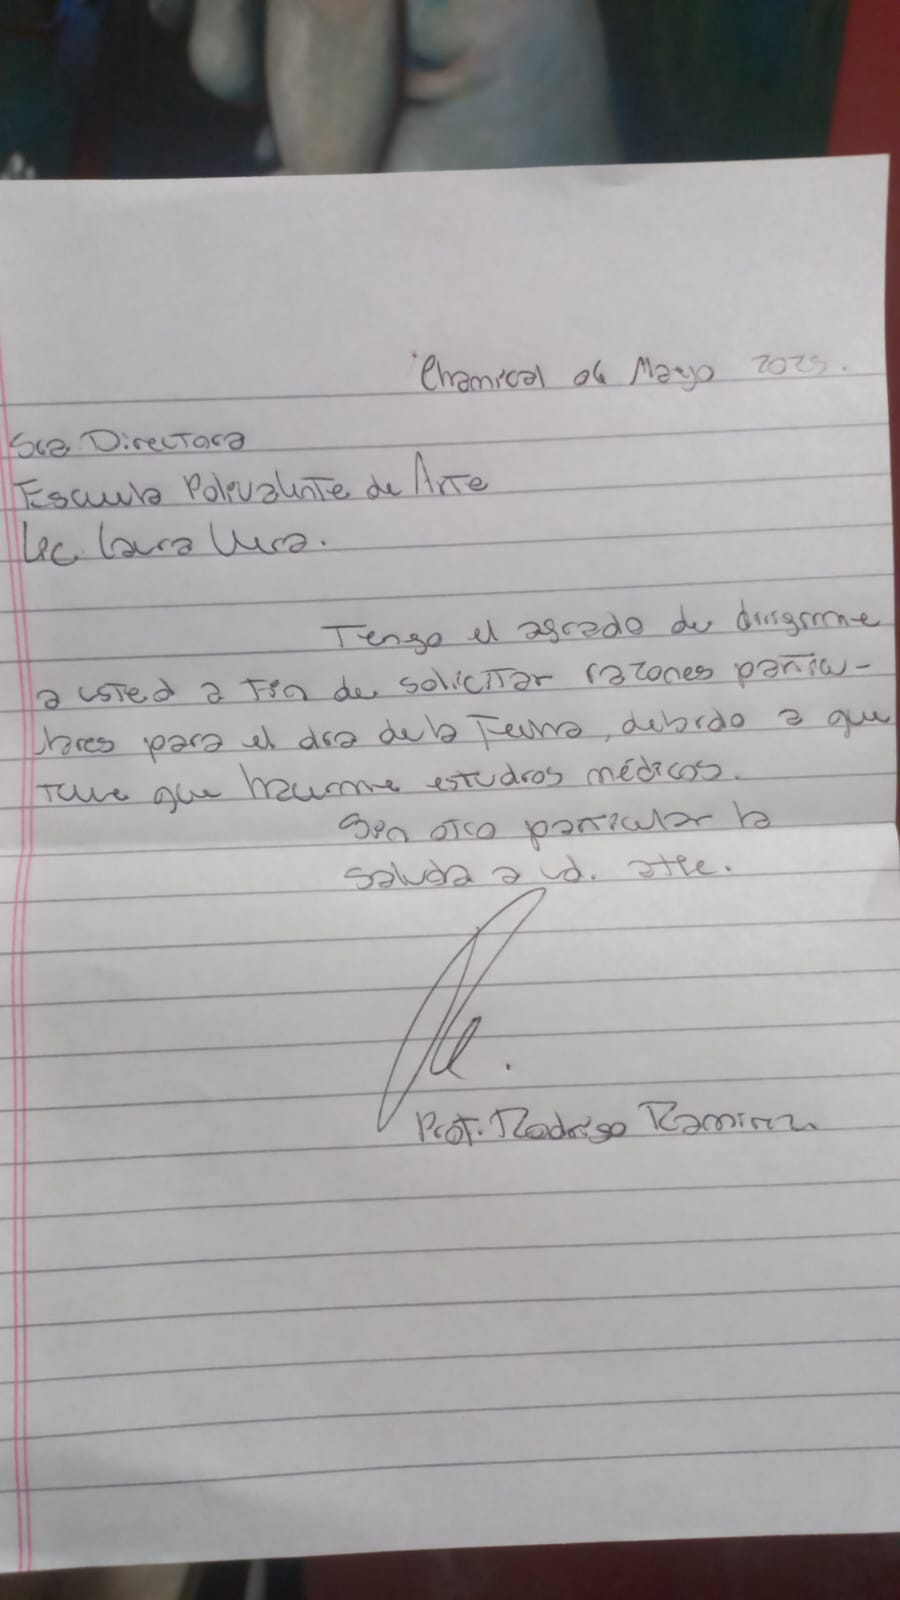 Chamical 06 Mayo 2025.
Sra Directora
Escuela Polivalente de Arte
Lic. Laura Vera.
Tengo el agrado de dirigirme
a usted a fin de solicitar razones particu-
lares para el día de la fecha, debido a que
tuve que hacerme estudios médicos.
Sin otro particular la
saluda a Ud. atte.
Prof. Rodrigo Ramirez.